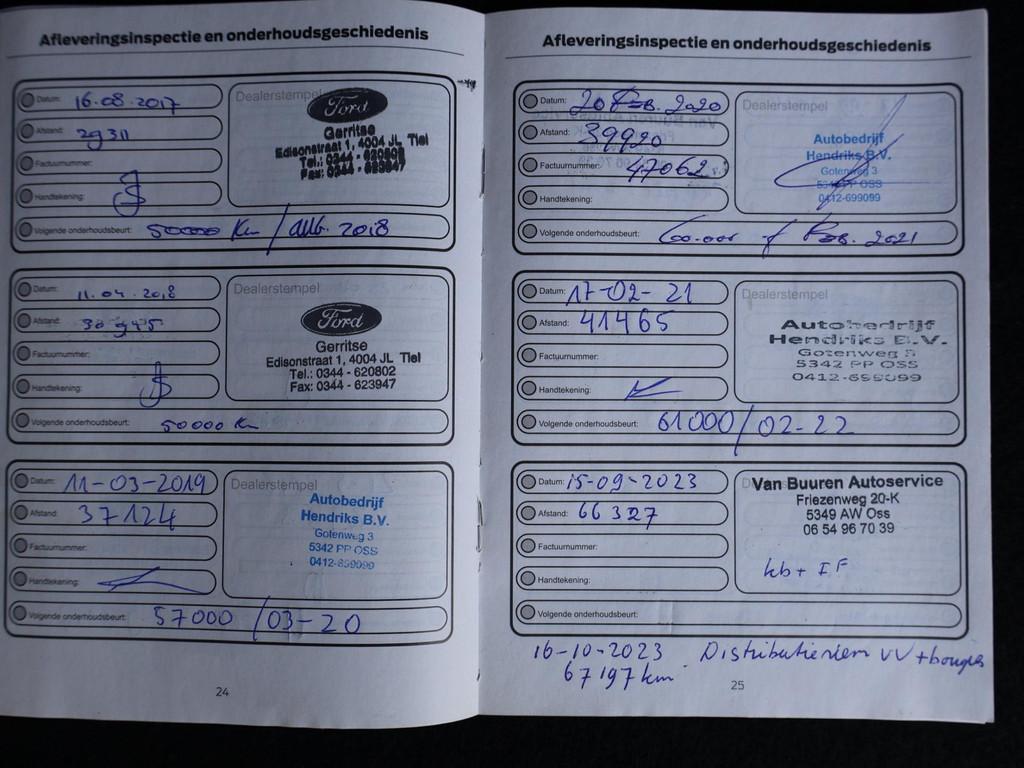 Afleveringsinspectie en onderhoudsgeschiedenis
Datum: 16.08.2017
Afstand: 29311
Factuurnummer:
Handtekening:
Volgende onderhoudsbeurt: 50000 Km / aug. 2018
Dealerstempel
Ford
Gerritse
Edisonstraat 1, 4004 JL Tiel
Tel.: 0344 - 620802
Fax: 0344 - 623947
Datum: 11.04.2018
Afstand: 30945
Factuurnummer:
Handtekening:
Volgende onderhoudsbeurt: 50000 Km
Dealerstempel
Ford
Gerritse
Edisonstraat 1, 4004 JL Tiel
Tel.: 0344 - 620802
Fax: 0344 - 623947
Datum: 11-03-2019
Afstand: 37124
Factuurnummer:
Handtekening:
Volgende onderhoudsbeurt: 57000 /03-20
Dealerstempel
Autobedrijf
Hendriks B.V.
Gotenweg 3
5342 PP OSS
0412-699099
24
Afleveringsinspectie en onderhoudsgeschiedenis
Datum: 20 Feb. 2020
Afstand: 39920
Factuurnummer: 47062
Handtekening:
Volgende onderhoudsbeurt: 60.000 / Feb. 2021
Dealerstempel
Autobedrijf
Hendriks B.V.
Gotenweg 3
5342 PP OSS
0412-699099
Datum: 17-02-21
Afstand: 41465
Factuurnummer:
Handtekening:
Volgende onderhoudsbeurt: 61000/02-22
Dealerstempel
Autobedrijf
Hendriks B.V.
Gotenweg 3
5342 PP OSS
0412-699099
Datum: 15-09-2023
Afstand: 66327
Factuurnummer:
Handtekening:
Volgende onderhoudsbeurt:
Van Buuren Autoservice
Friezenweg 20-K
5349 AW Oss
06 54 96 70 39
kb + IF
16-10-2023 Distributieriem VV + bougies
67197 km
25